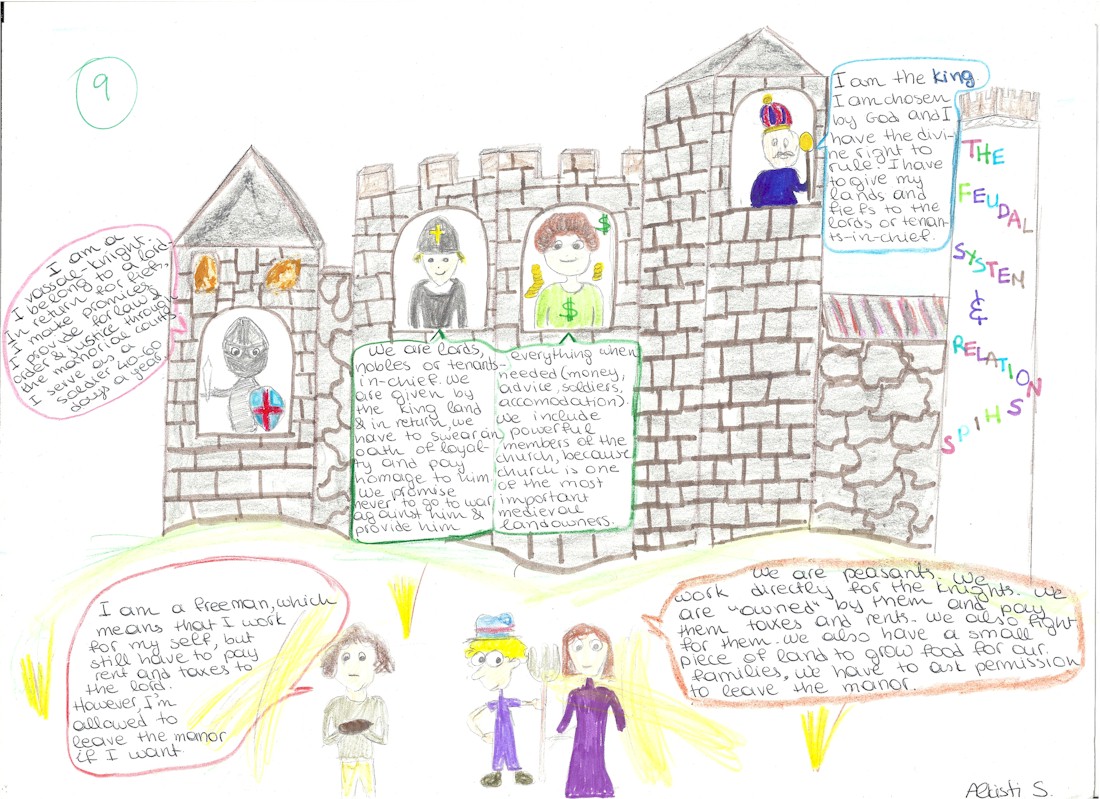 9
I am the king
I am chosen
by God and I
have the divi-
ne right to
rule. I have
to give my
lands and
fiefs to the
lords or tenan-
ts-in-chief.
THE
FEUDAL
SYSTEN
&
RELATION
SPIHS
I am a
vassal-knight.
I belong to a lord.
In return for fiefs,
I make promises.
I provide for law &
order & justice through
the manorial courts.
I serve as a
soldier 40-60
days a year.
We are lords,
nobles or tenants-
in-chief. We
are given by
the king land
& in return, we
have to swear an
oath of loyal-
ty and pay
homage to him.
We promise
never to go to war
against him &
provide him
everything when
needed (money,
advice, soldiers,
accomodation).
We include
powerful
members of the
church, because
church is one
of the most
important
medieval
landowners.
I am a freeman, which
means that I work
for my self, but
still have to pay
rent and taxes to
the lord.
However, I'm
allowed to
leave the manor
if I want.
We are peasants. We
work directly for the knights. We
are "owned" by them and pay
them taxes and rents. We also fight
for them. We also have a small
piece of land to grow food for our
families, we have to ask permission
to leave the manor.
$
$
S.